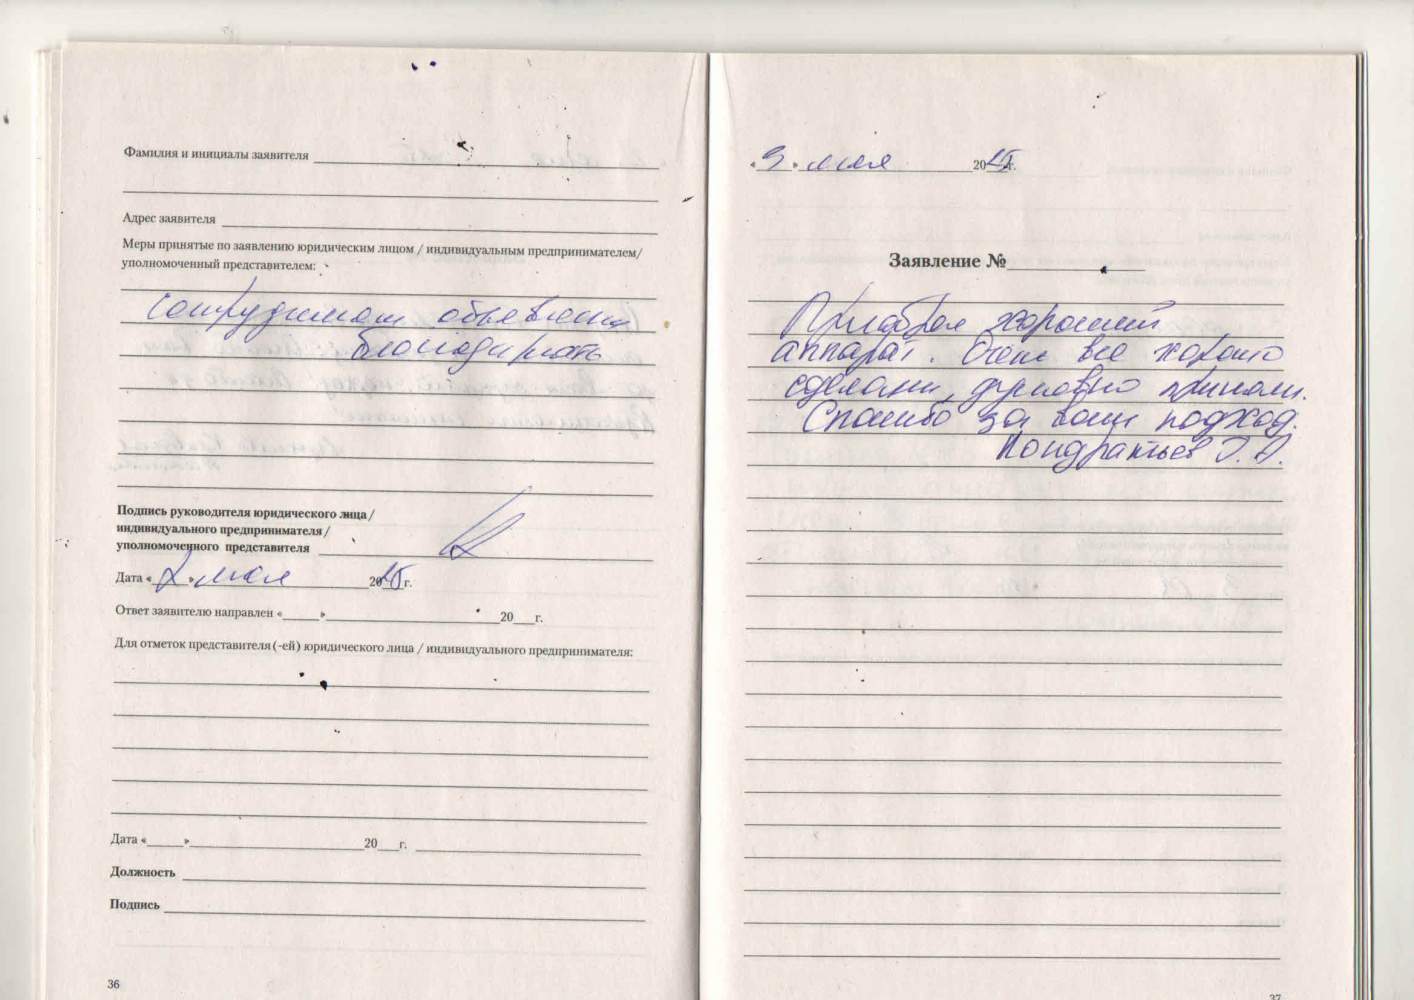 Фамилия и инициалы заявителя
Адрес заявителя
Меры принятые по заявлению юридическим лицом / индивидуальным предпринимателем/
уполномоченный представителем:
сотрудникам объявлена
благодарность
Подпись руководителя юридического лица /
индивидуального предпринимателя /
уполномоченного представителя
Дата « 2 » мая 2015 г.
Ответ заявителю направлен «___» ___ 20___г.
Для отметок представителя (-ей) юридического лица / индивидуального предпринимателя:
Дата «___» ___ 20___г.
Должность
Подпись
36
« 3 » мая 2015 г.
Заявление №
Приобрел хороший
аппарат. Очень все хорошо
сделали, душевно приняли.
Спасибо за ваш подход.
Кондратьев Г. А.
37